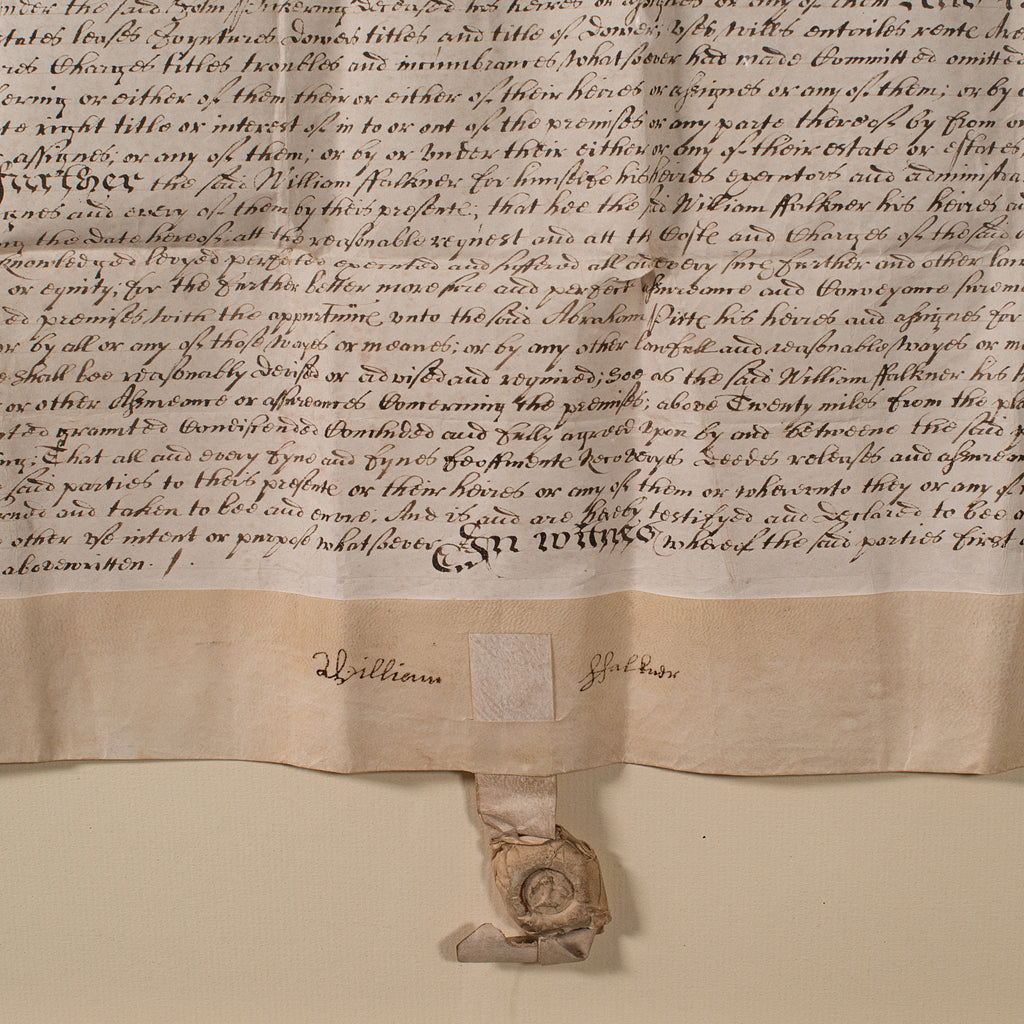 the said John Pickering deceased his heires or assignes or any of them
estates leases Joyntures Dowers titles and title of Dower, Uses, Wills entailes rente
Charges titles troubles and incumbrances whatsoever had made Committed omitted
or either of them their or either of their heires or assignes or any of them; or by
right title or interest of in to or out of the premises or any parte thereof by from or
assignes; or any of them; or by or under their either or any of their estate or estates
Further the said William Ffalkner for himselfe his heires executors and
and every of them by theis presente; that hee the said William Ffalkner his heires
the date hereof, att the reasonable request and att the Coste and Charges of the said
knowledged levyed perfected executed and suffered all and every such further and other
or equity; for the further better more sure and perfect assureance and Conveyance
premises with the appurtennce unto the said Abraham his heires and assignes for
or by all or any of those wayes or meanes; or by any other lawfull and reasonable wayes or
shall bee reasonably devised or advised and required; soe as the said William Ffalkner his
or other Assureance or assureances Concerning the premises; above Twenty miles from the
graunted Condiscended Concluded and fully agreed upon by and betweene the said
That all and every fyne and fynes feoffmente Recoveryes Deedes releases and
said parties to theis presente or their heires or any of them or whereunto they or any of
and taken to bee and enure; And is and are hereby testifyed and declared to bee
other use intent or purpose whatsoever In witnes whereof the said parties first
abovewritten.
William Ffalkner